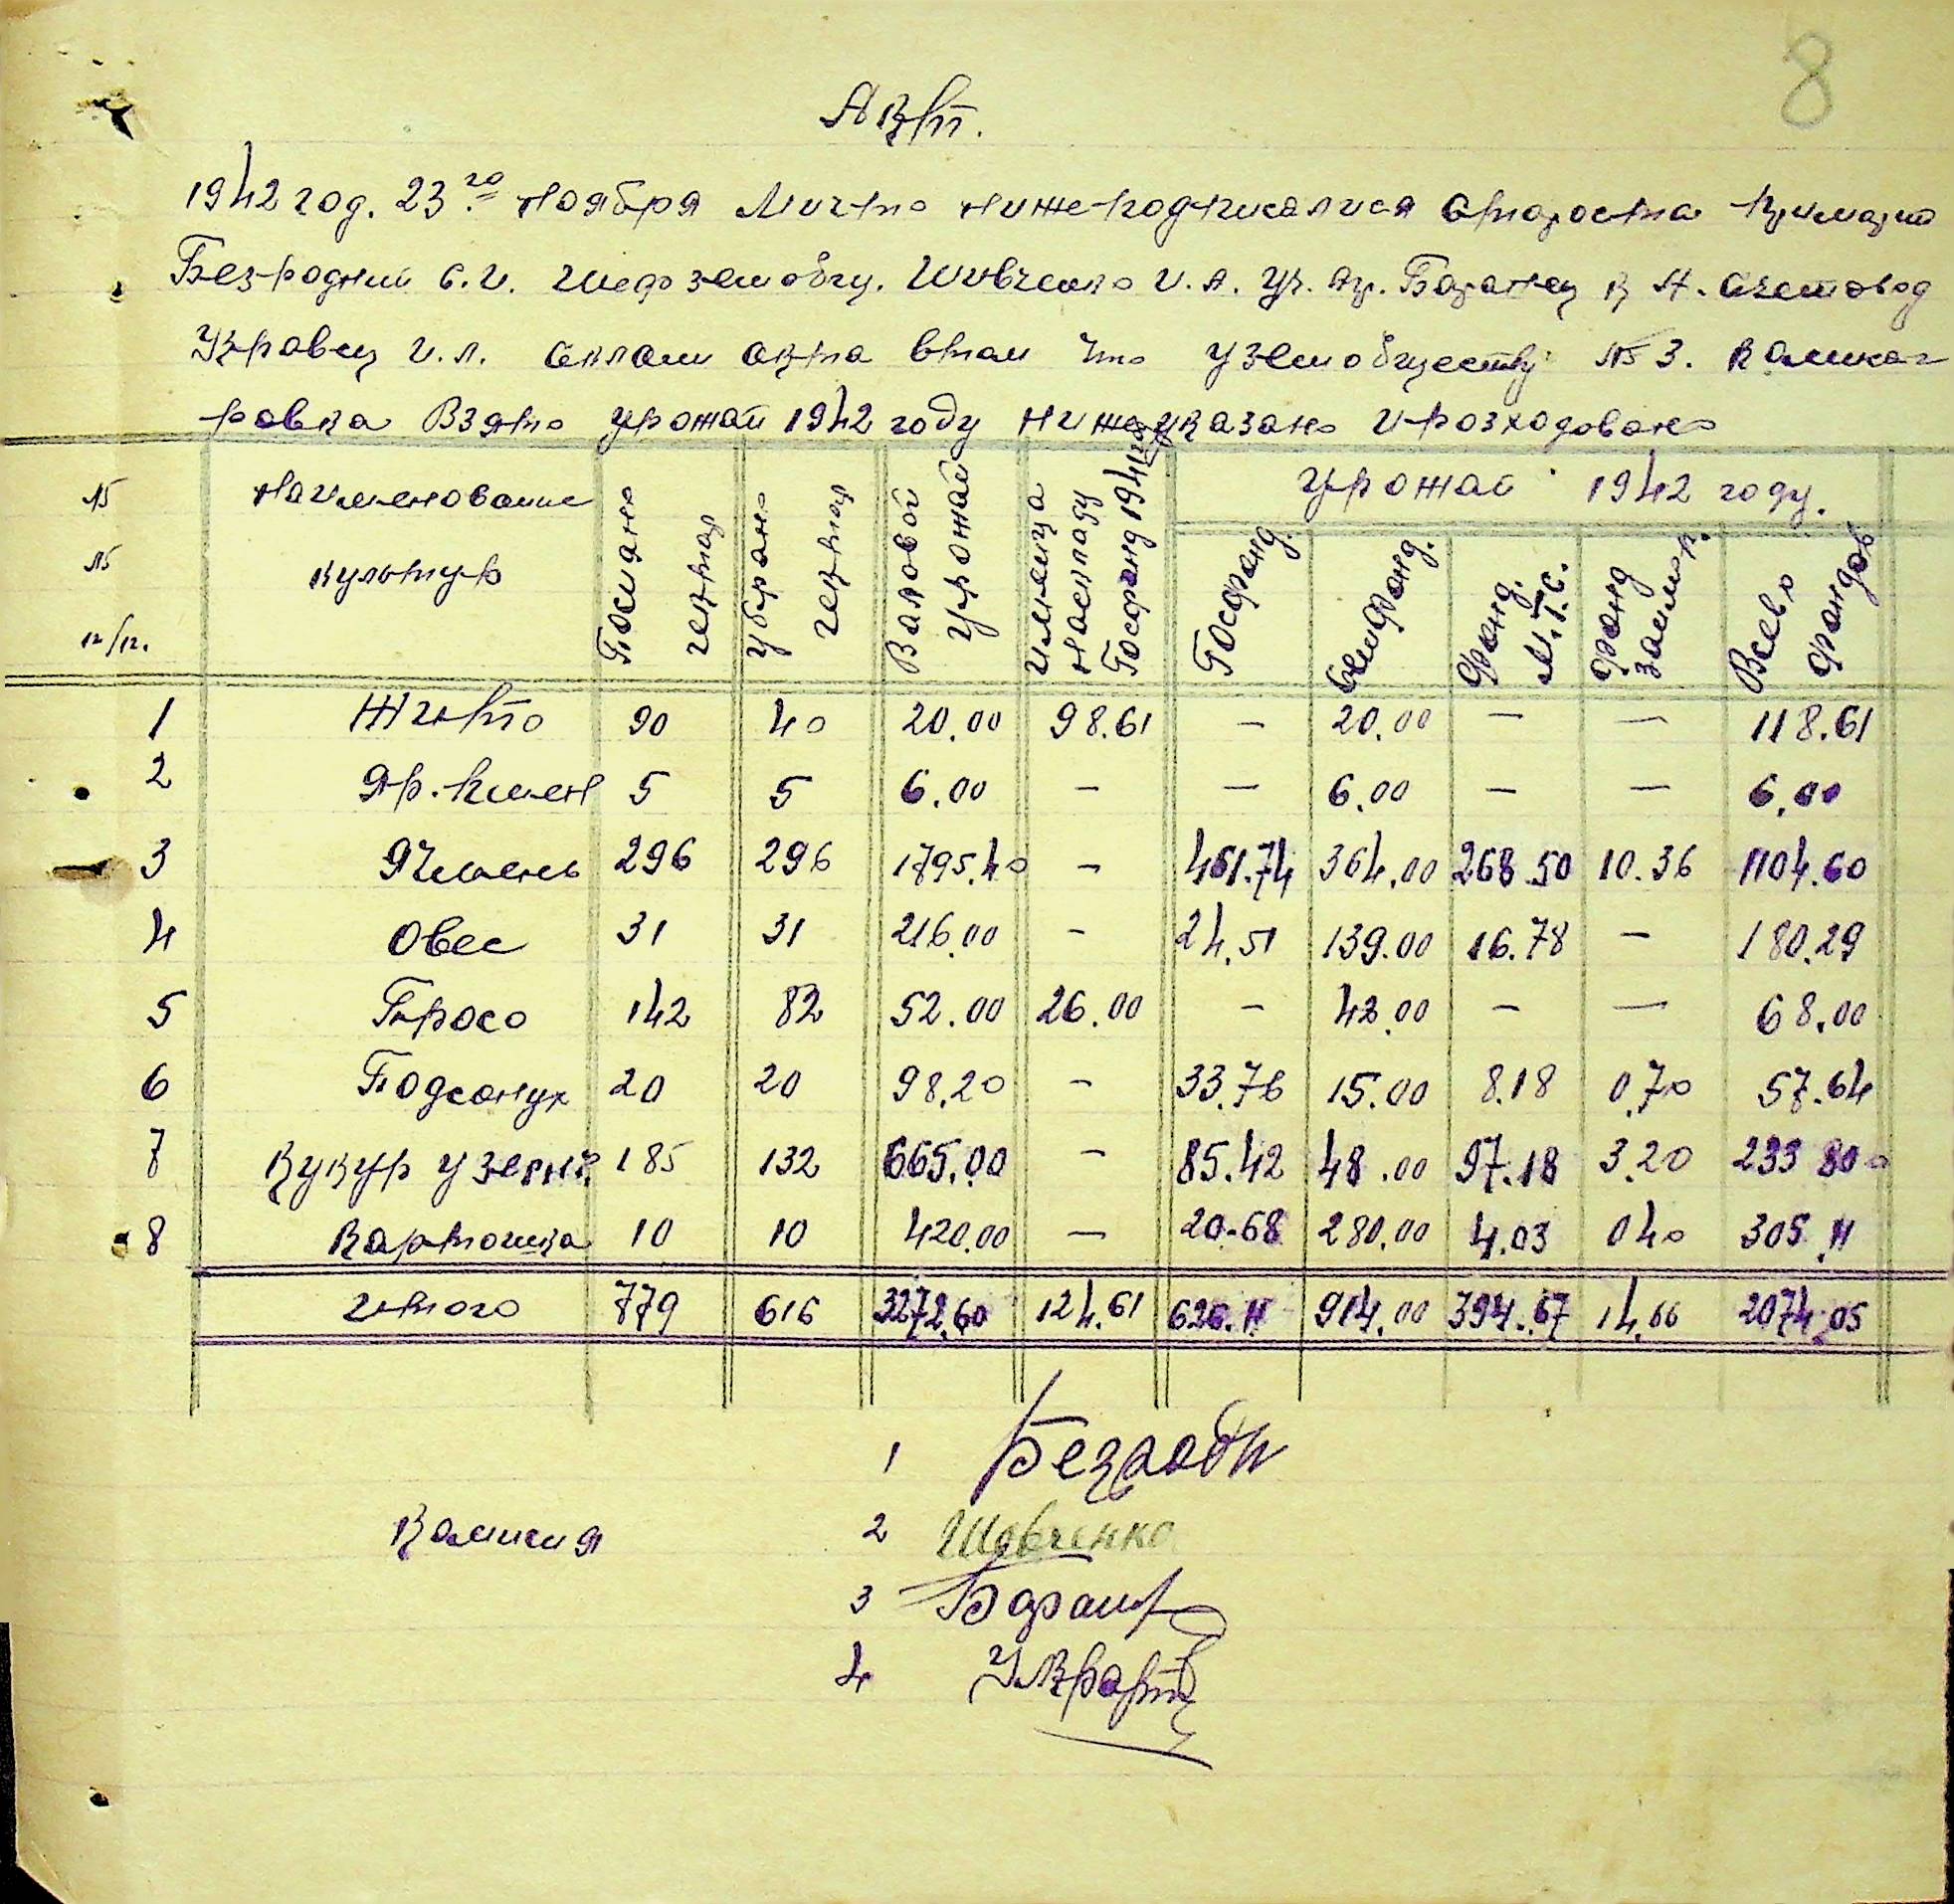 8
Акт.
1942 год. 23го ноября Мичто нижеподписалися староста примарии
Безродний С.И. шеф земобщ. Шивченко И.А. Уч. Аг. Баранец К А. Счетовод
Укравец И.Л. Склали акта втом что у земобществу №3. Камисаг
ровка Взято урожай 1942 году нижеуказано и розходовано
№ № п/п. | Наименование культур | Посияно гектар | Убрано гектар | Валовой урожай | Имеица наскладу Госфонд 1941 | Урожай 1942 году.
Госфонд. | Семфонд. | Фонд. М.Т.С. | Фонд | Всево фондов
1 Жито 90 40 20.00 98.61 — 20.00 — — 118.61
2 Яр. Пшен 5 5 6.00 — — 6.00 — — 6.00
3 Ячмень 296 296 1795.40 — 461.74 364.00 268.50 10.36 1104.60
4 Овес 31 31 216.00 — 24.51 139.00 16.78 — 180.29
5 Просо 142 82 52.00 26.00 — 42.00 — — 68.00
6 Подсонух 20 20 98.20 — 33.76 15.00 8.18 0.70 57.64
7 Кукур у зерни 185 132 665.00 — 85.42 48.00 97.18 3.20 233 80
8 Картошка 10 10 420.00 — 20-68 280.00 4.03 040 305.11
Итого 779 616 3272.60 124.61 626.11 914.00 394.67 14.66 2074.05
Камисия
1 Безродн
2 Шевченко
3 Баранец
4